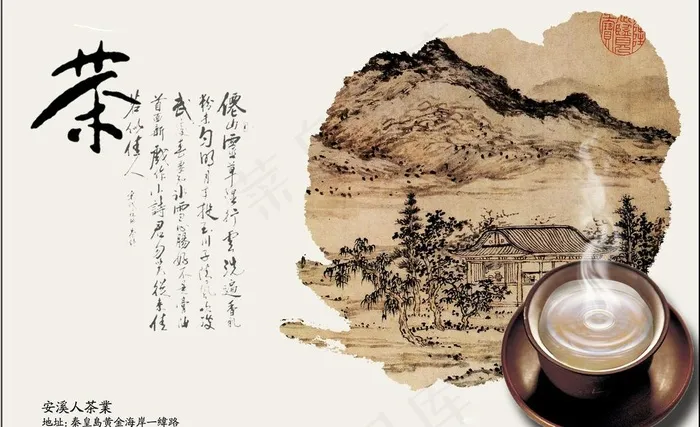 茶
僊山靈草濕行雲洗遍香肌
粉未勻明月來投玉川子清風吹破
武林春要知冰雪心腸好不是膏油
首面新戲作小詩君勿笑從來佳
茗似佳人
安溪人茶業
地址:秦皇島黃金海岸一緯路